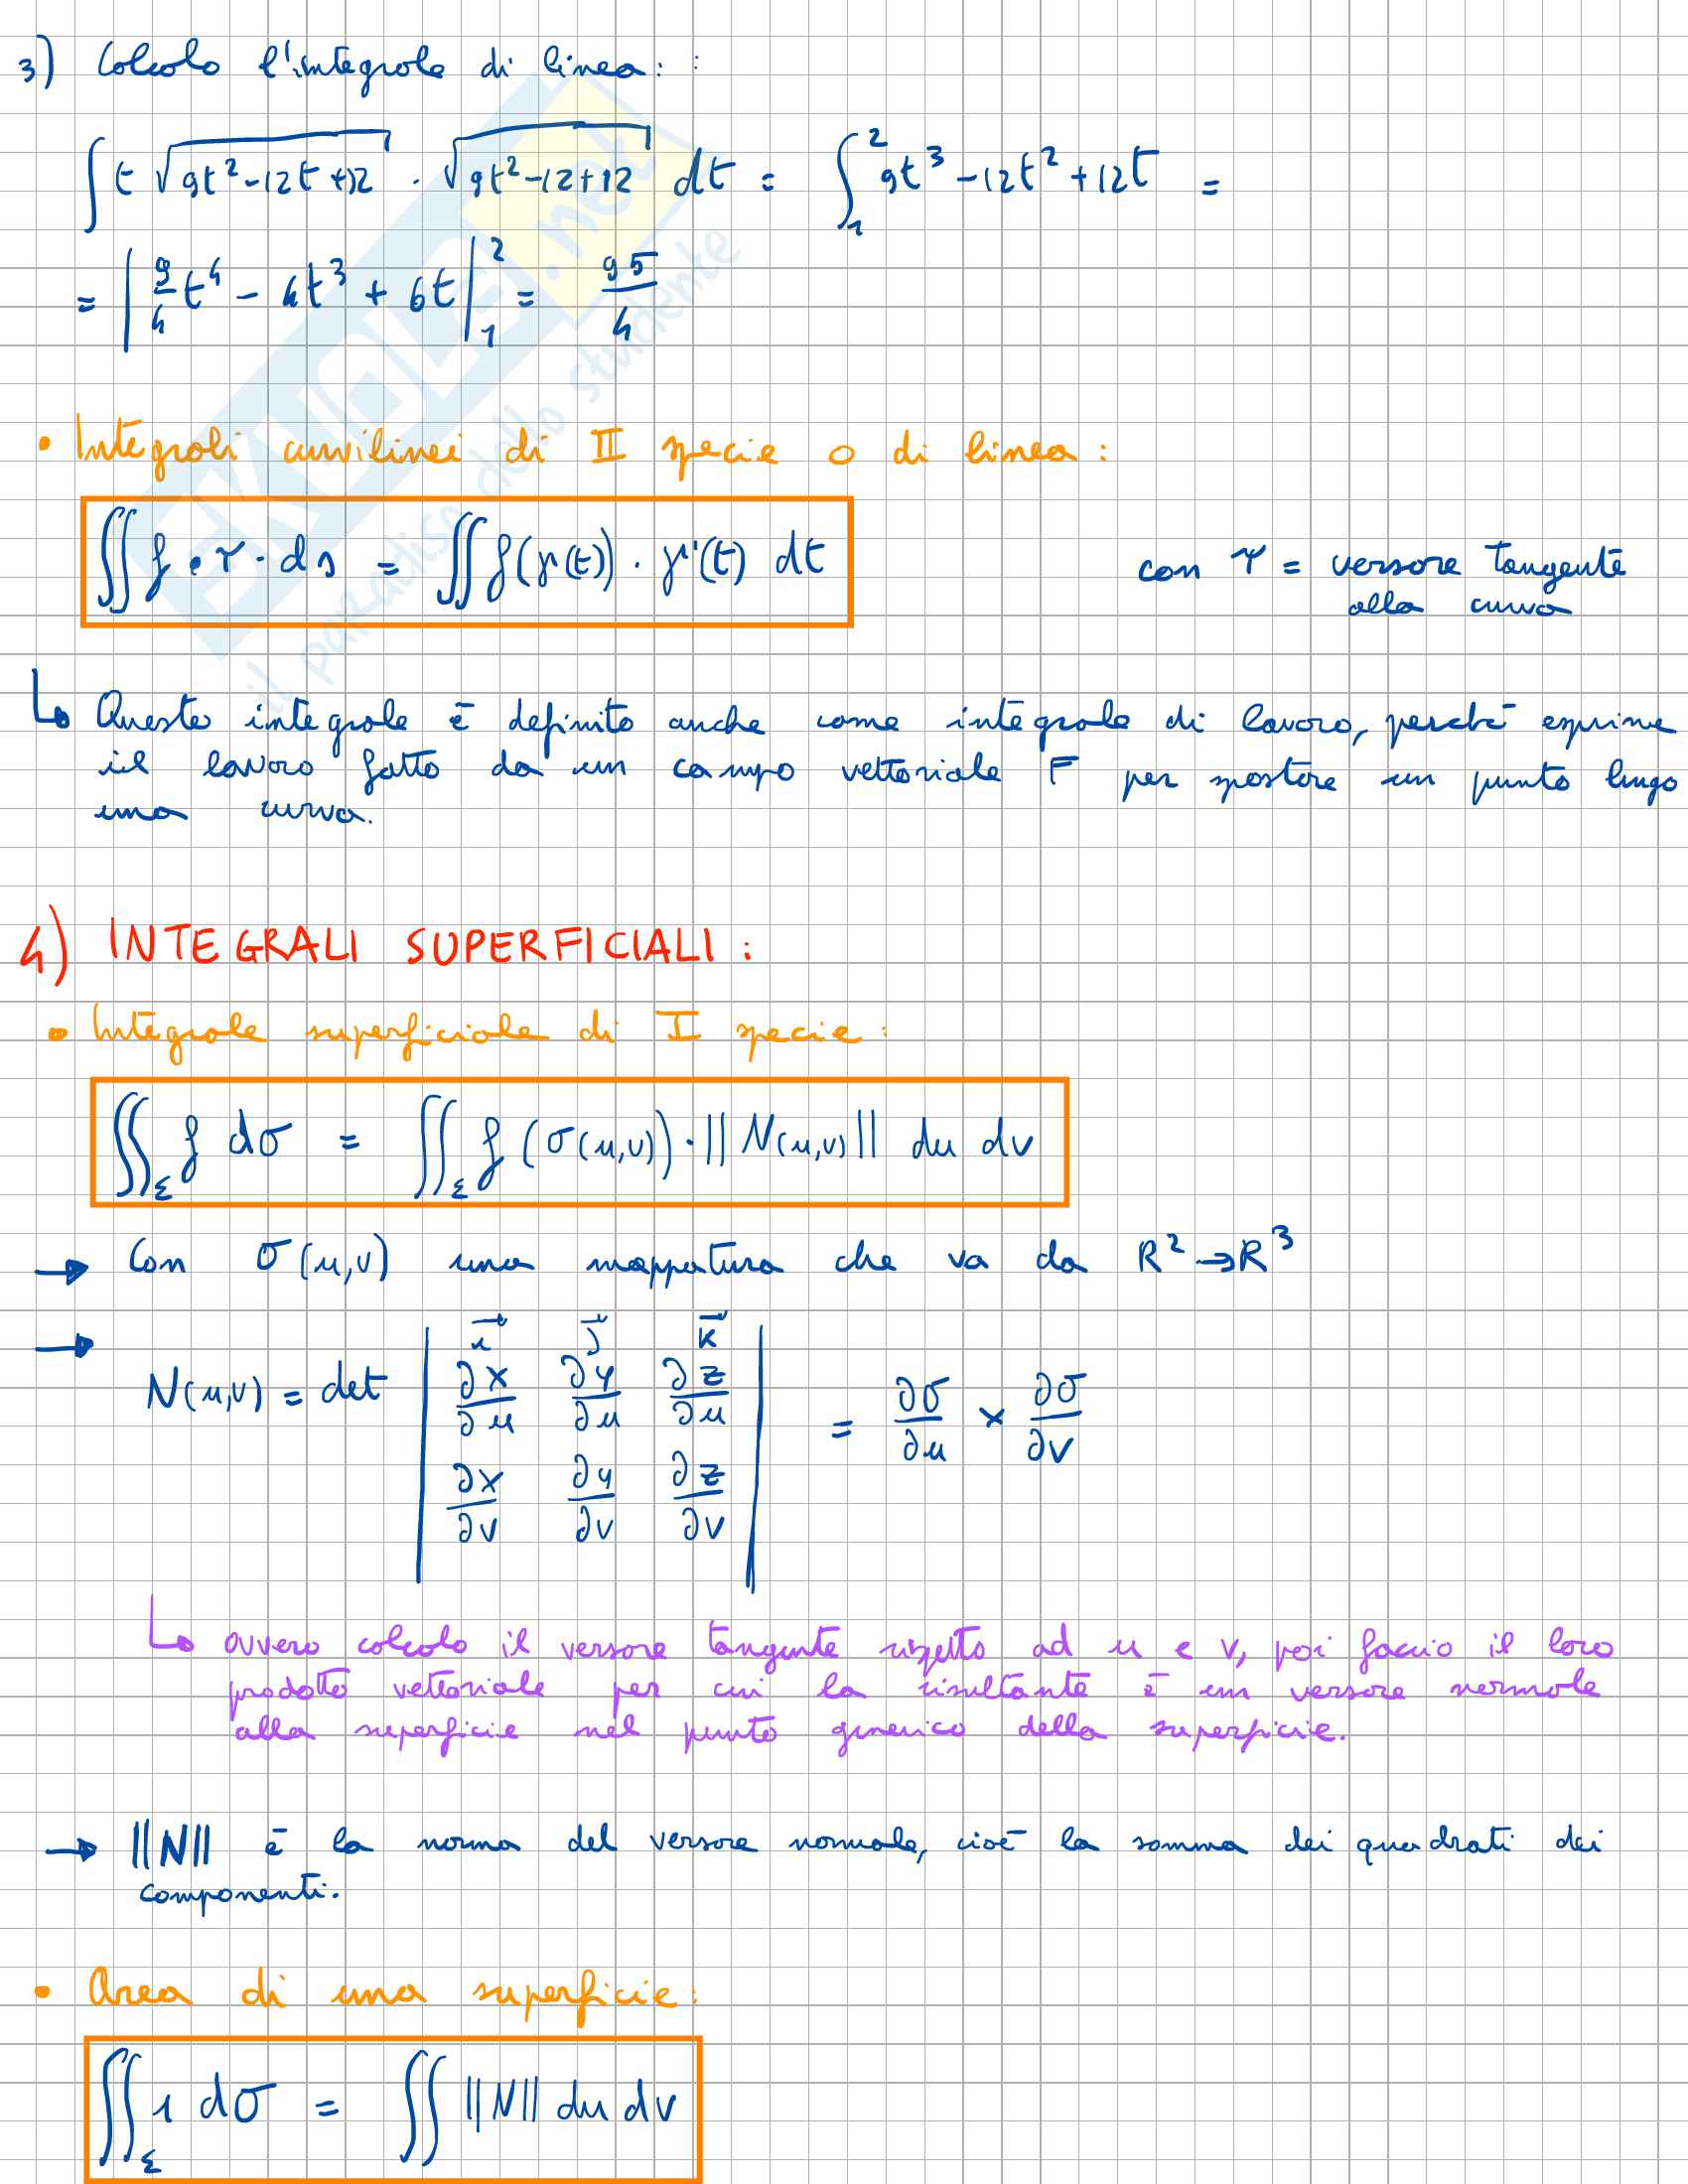 3) Calcolo l'integrale di linea: :
∫ t √(9t²-12t+12) · √(9t²-12+12) dt = ∫₁² 9t³-12t²+12t =
= | 9/4 t⁴ - 4t³ + 6t |₁² = 95/4
• Integrali curvilinei di II specie o di linea:
∬ f • τ · ds = ∬ f(γ(t)) · γ'(t) dt
con τ = versore tangente
alla curva
↳ Questo integrale è definito anche come integrale di lavoro, perché esprime
il lavoro fatto da un campo vettoriale F per spostare un punto lungo
una curva.
4) INTEGRALI SUPERFICIALI:
• Integrale superficiale di I specie:
∬_Σ f dσ = ∬_Σ f(σ(u,v)) · ||N(u,v)|| du dv
→ Con σ(u,v) una mappatura che va da R² → R³
→ N(u,v) = det | i⃗ j⃗ k⃗ ; ∂x/∂u ∂y/∂u ∂z/∂u ; ∂x/∂v ∂y/∂v ∂z/∂v | = ∂σ/∂u × ∂σ/∂v
↳ ovvero calcolo il versore tangente rispetto ad u e v, poi faccio il loro
prodotto vettoriale per cui la risultante è un versore normale
alla superficie nel punto generico della superficie.
→ ||N|| è la norma del versore normale, cioè la somma dei quadrati dei
componenti.
• Area di una superficie:
∬_Σ 1 dσ = ∬ ||N|| du dv
SKUOLA.net
il paradiso dello studente